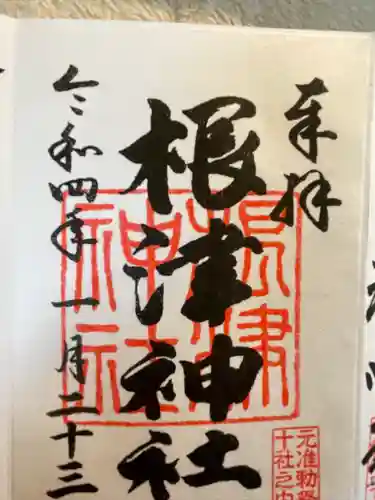 奉拝
根津神社
根津
神社
元准勅祭
十社之内
令和四年一月二十三